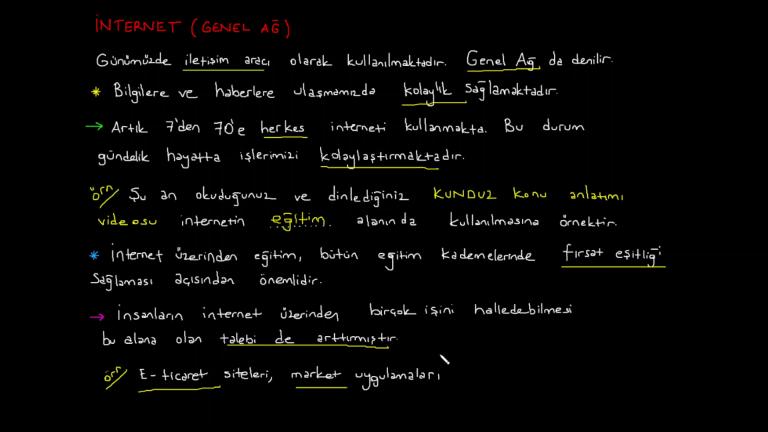 İNTERNET (GENEL AĞ)
Günümüzde iletişim aracı olarak kullanılmaktadır. Genel Ağ da denilir.
* Bilgilere ve haberlere ulaşmamızda kolaylık sağlamaktadır.
→ Artık 7'den 70'e herkes interneti kullanmakta. Bu durum
gündelik hayatta işlerimizi kolaylaştırmaktadır.
örn/ Şu an okuduğunuz ve dinlediğiniz KUNDUZ konu anlatımı
videosu internetin eğitim alanında kullanılmasına örnektir.
* İnternet üzerinden eğitim, bütün eğitim kademelerinde fırsat eşitliği
sağlaması açısından önemlidir.
→ İnsanların internet üzerinden birçok işini halledebilmesi
bu alana olan talebi de arttırmıştır.
örn/ E-ticaret siteleri, market uygulamaları